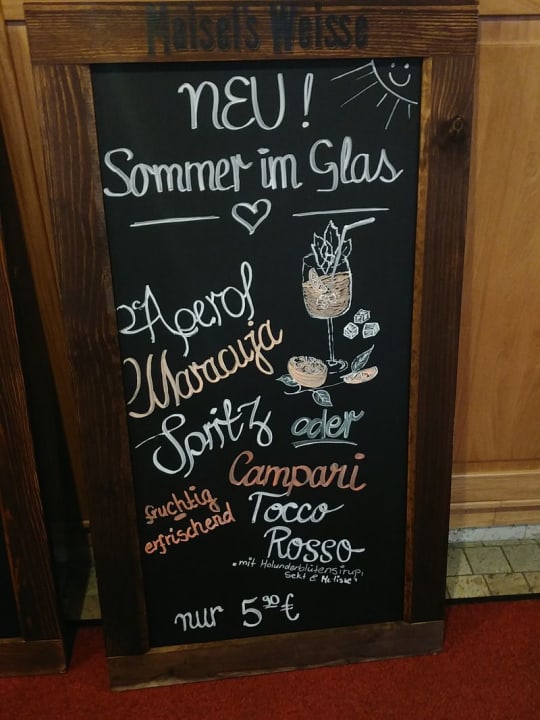 Maisel's Weisse
NEU!
Sommer im Glas
Aperol
Maracuja
Spritz oder
Campari
fruchtig Tocco
erfrischend Rosso
"mit Holunderblütensirup,
Sekt & Melisse"
nur 5 90 €